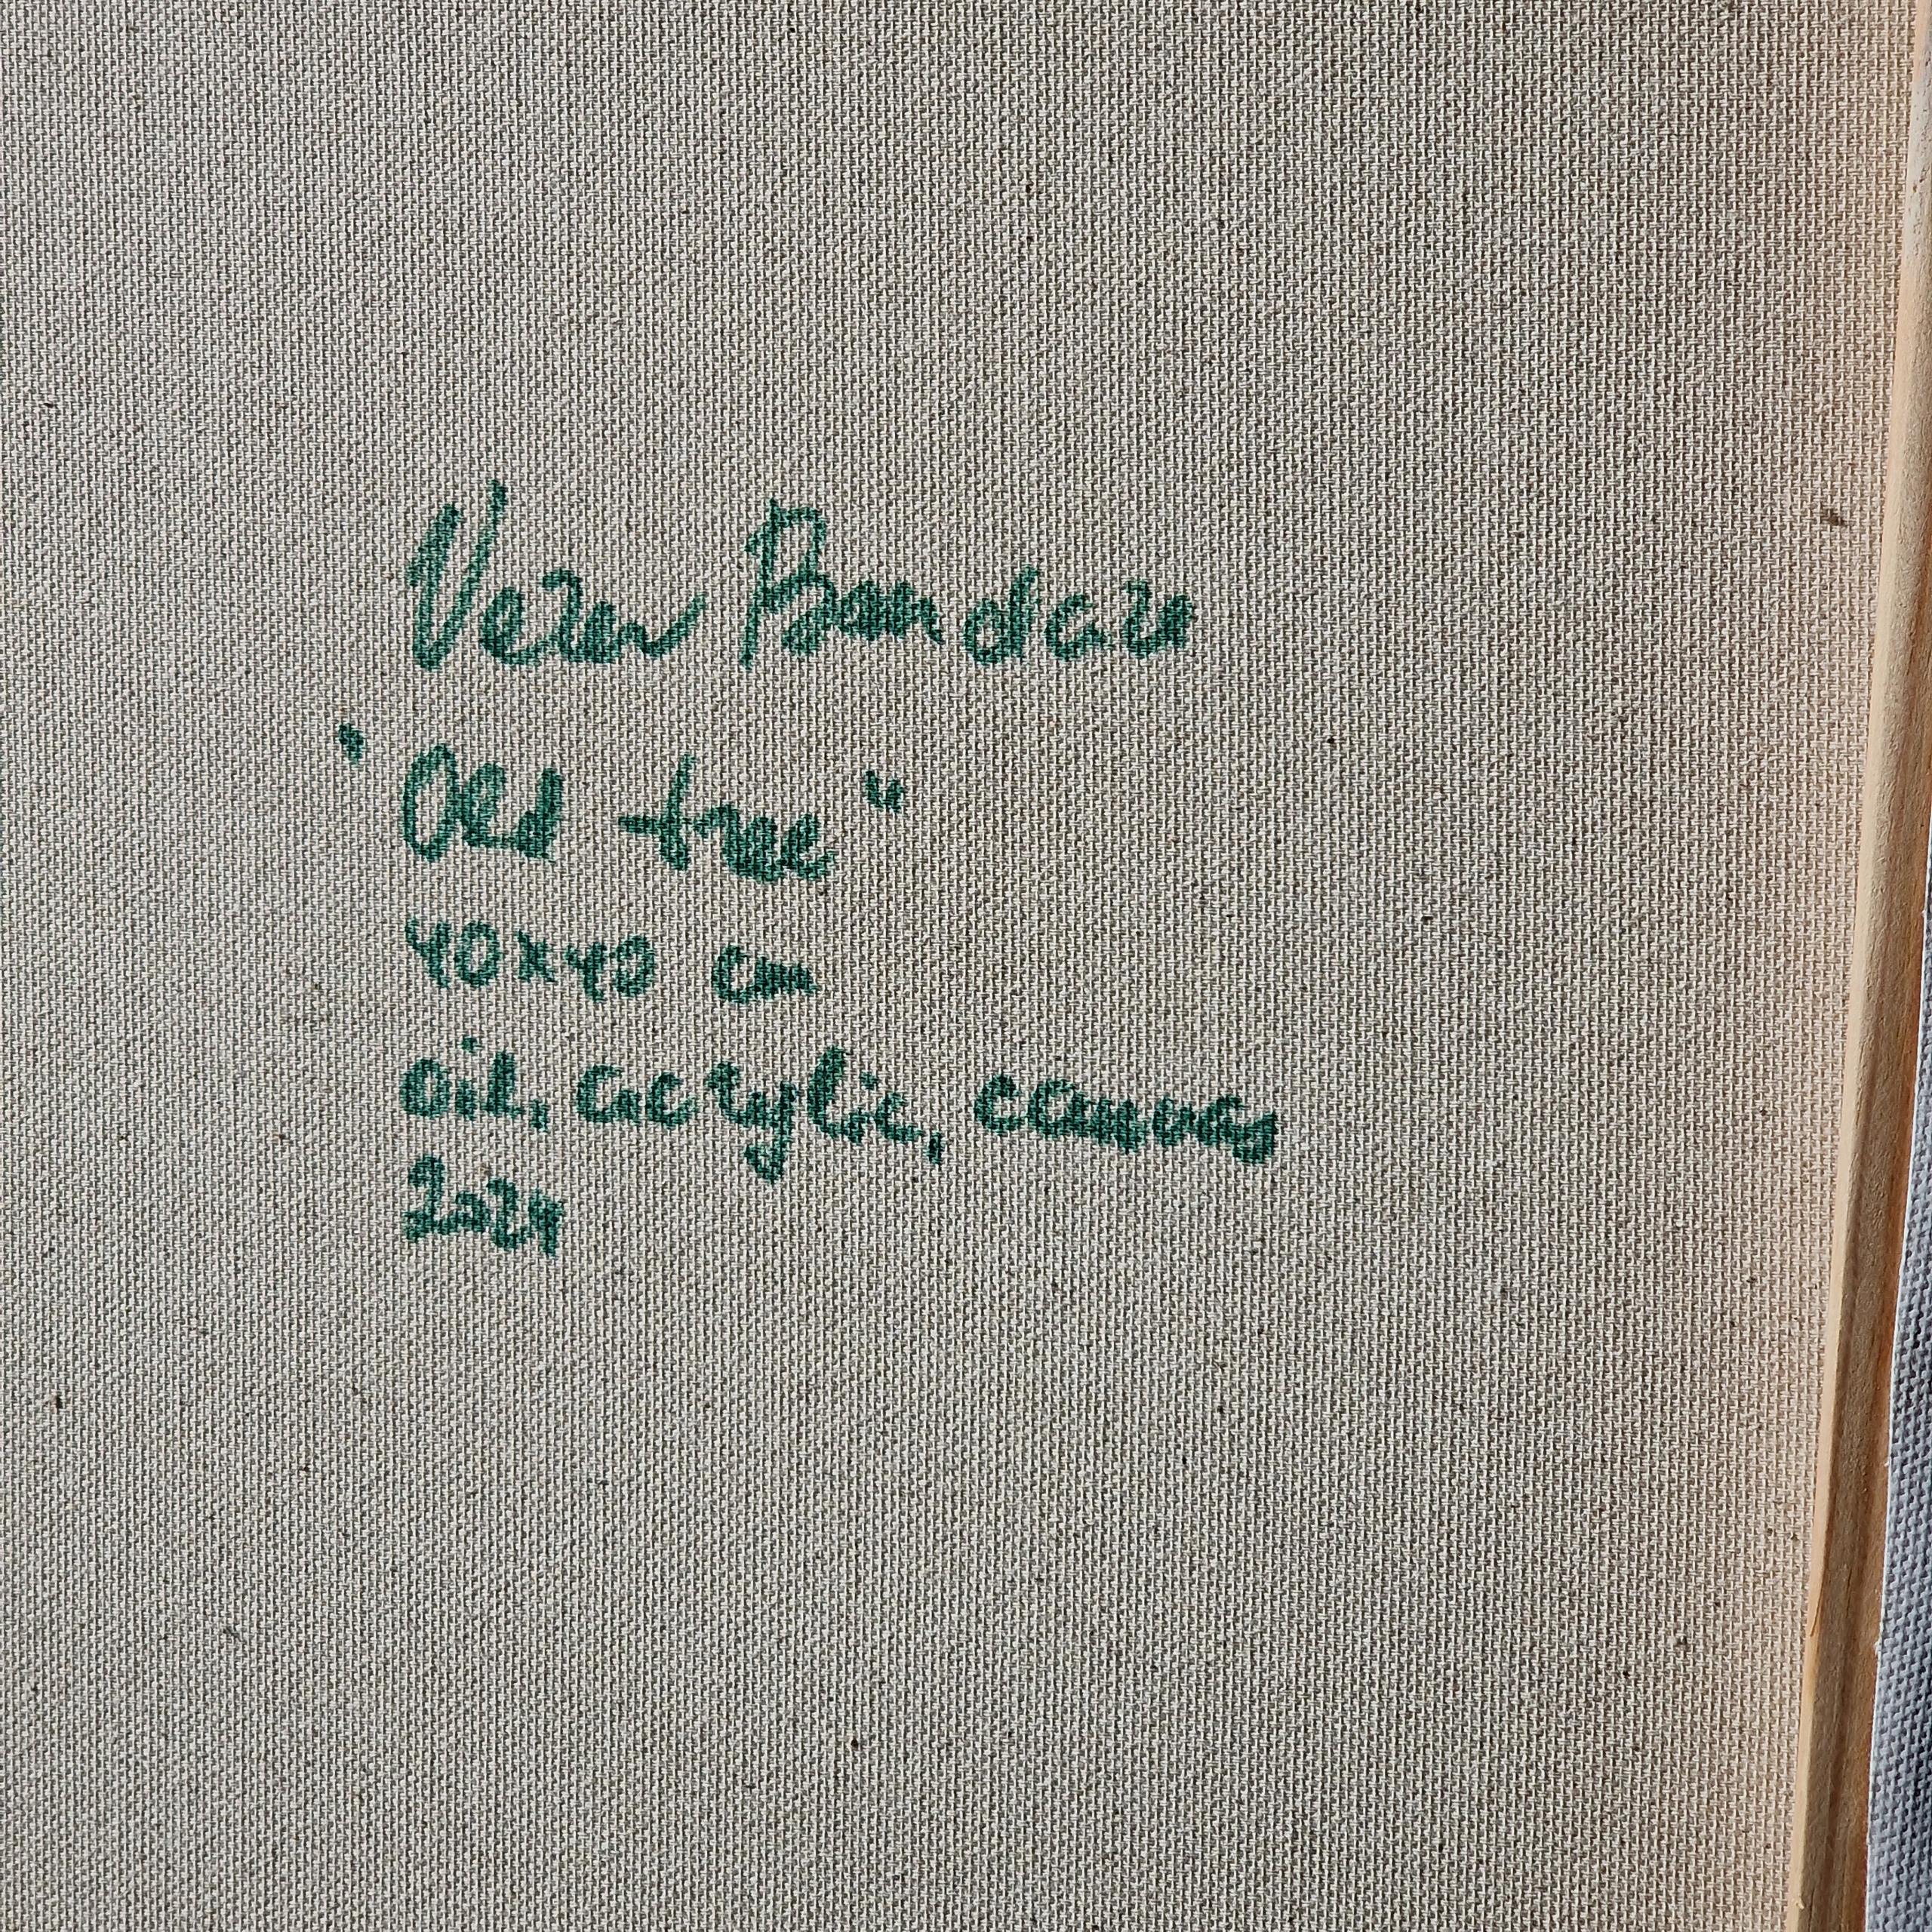 Vera Bondare
"Old tree"
40x40 cm
oil, acrylic, canvas
2024